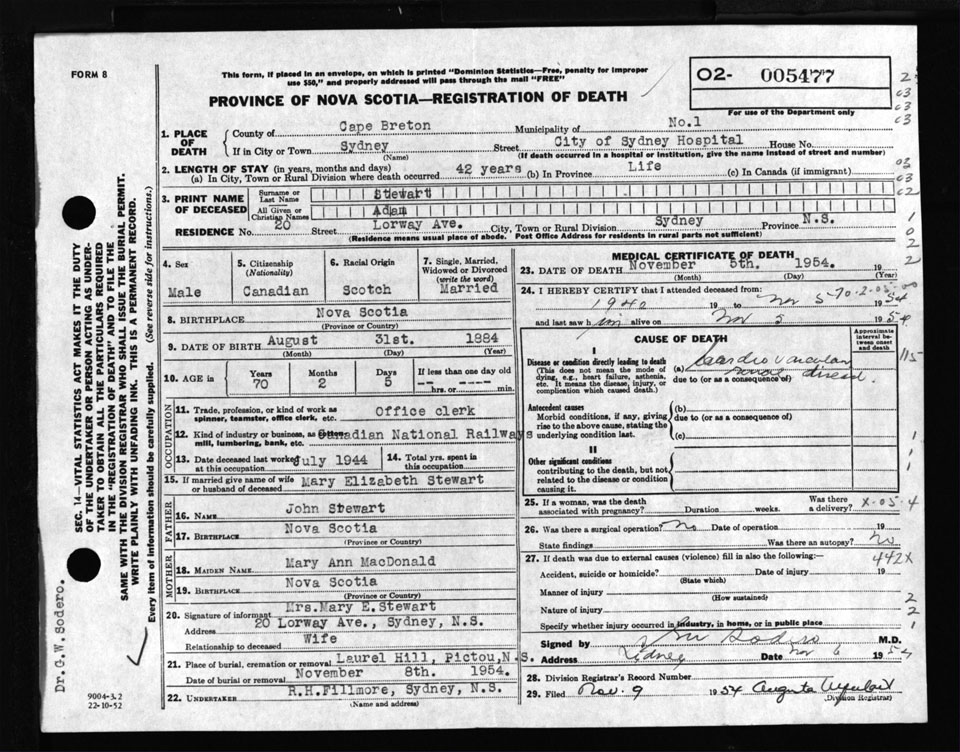 FORM 8
This form, if placed in an envelope, on which is printed "Dominion Statistics—Free, penalty for improper
use $50," and properly addressed will pass through the mail "FREE"
O2- 005477
For use of the Department only
PROVINCE OF NOVA SCOTIA—REGISTRATION OF DEATH
1. PLACE OF DEATH
County of Cape Breton Municipality of No.1
If in City or Town Sydney Street City of Sydney Hospital House No.
(Name) (If death occurred in a hospital or institution, give the name instead of street and number)
2. LENGTH OF STAY (in years, months and days)
(a) In City, Town or Rural Division where death occurred 42 years (b) In Province Life (c) In Canada (if immigrant)
3. PRINT NAME OF DECEASED
Surname or Last Name Stewart
All Given or Christian Names Adam
RESIDENCE No. 20 Street Lorway Ave. City, Town or Rural Division Sydney Province N.S.
(Residence means usual place of abode. Post Office Address for residents in rural parts not sufficient)
4. Sex
Male
5. Citizenship (Nationality)
Canadian
6. Racial Origin
Scotch
7. Single, Married, Widowed or Divorced (write the word)
Married
8. BIRTHPLACE Nova Scotia
(Province or Country)
9. DATE OF BIRTH August 31st. 1884
(Month) (Day) (Year)
10. AGE in Years 70 Months 2 Days 5 If less than one day -- hrs. or -- min.
OCCUPATION
11. Trade, profession, or kind of work as spinner, teamster, office clerk, etc. Office clerk
12. Kind of industry or business, as mill, lumbering, bank, etc. Canadian National Railways
13. Date deceased last worked at this occupation July 1944
14. Total yrs. spent in this occupation
15. If married give name of wife or husband of deceased Mary Elizabeth Stewart
FATHER
16. NAME John Stewart
17. BIRTHPLACE Nova Scotia
(Province or Country)
MOTHER
18. MAIDEN NAME Mary Ann MacDonald
19. BIRTHPLACE Nova Scotia
(Province or Country)
20. Signature of informant Mrs.Mary E.Stewart
Address 20 Lorway Ave., Sydney, N.S.
Relationship to deceased Wife
21. Place of burial, cremation or removal Laurel Hill, Pictou,N.S.
Date of burial or removal November 8th. 1954.
22. UNDERTAKER R.H.Fillmore, Sydney, N.S.
(Name and address)
MEDICAL CERTIFICATE OF DEATH
23. DATE OF DEATH November 5th. 1954. 19
(Month) (Day) (Year)
24. I HEREBY CERTIFY that I attended deceased from:
1940 19 to Nov 5 1954
and last saw him alive on Nov 5 1954
CAUSE OF DEATH
Approximate interval between onset and death
I
Disease or condition directly leading to death
(This does not mean the mode of dying, e.g., heart failure, asthenia, etc. It means the disease, injury, or complication which caused death.)
(a) Cardio vascular
due to (or as a consequence of)
Antecedent causes
Morbid conditions, if any, giving rise to the above cause, stating the underlying condition last.
(b)
due to (or as a consequence of)
(c)
II
Other significant conditions
contributing to the death, but not related to the disease or condition causing it.
25. If a woman, was the death associated with pregnancy? Duration weeks. Was there a delivery?
26. Was there a surgical operation? No Date of operation 19
State findings Was there an autopsy? No
27. If death was due to external causes (violence) fill in also the following:—
Accident, suicide or homicide? Date of injury 19
(State which)
Manner of injury
(How sustained)
Nature of injury
Specify whether injury occurred in industry, in home, or in public place
Signed by Sodero M.D.
Address Sydney Date Nov 6 1954
28. Division Registrar's Record Number
29. Filed Nov. 9 1954 Augusta
(Division Registrar)
442X
SEC. 14—VITAL STATISTICS ACT MAKES IT THE DUTY
OF THE UNDERTAKER OR PERSON ACTING AS UNDER-
TAKER TO OBTAIN ALL THE PARTICULARS REQUIRED
IN THE "REGISTRATION OF DEATH" AND TO FILE THE
SAME WITH THE DIVISION REGISTRAR WHO SHALL ISSUE THE BURIAL PERMIT.
WRITE PLAINLY WITH UNFADING INK. THIS IS A PERMANENT RECORD.
Every item of information should be carefully supplied. (See reverse side for instructions.)
Dr.G.W.Sodero.
9004-3.2
22-10-52